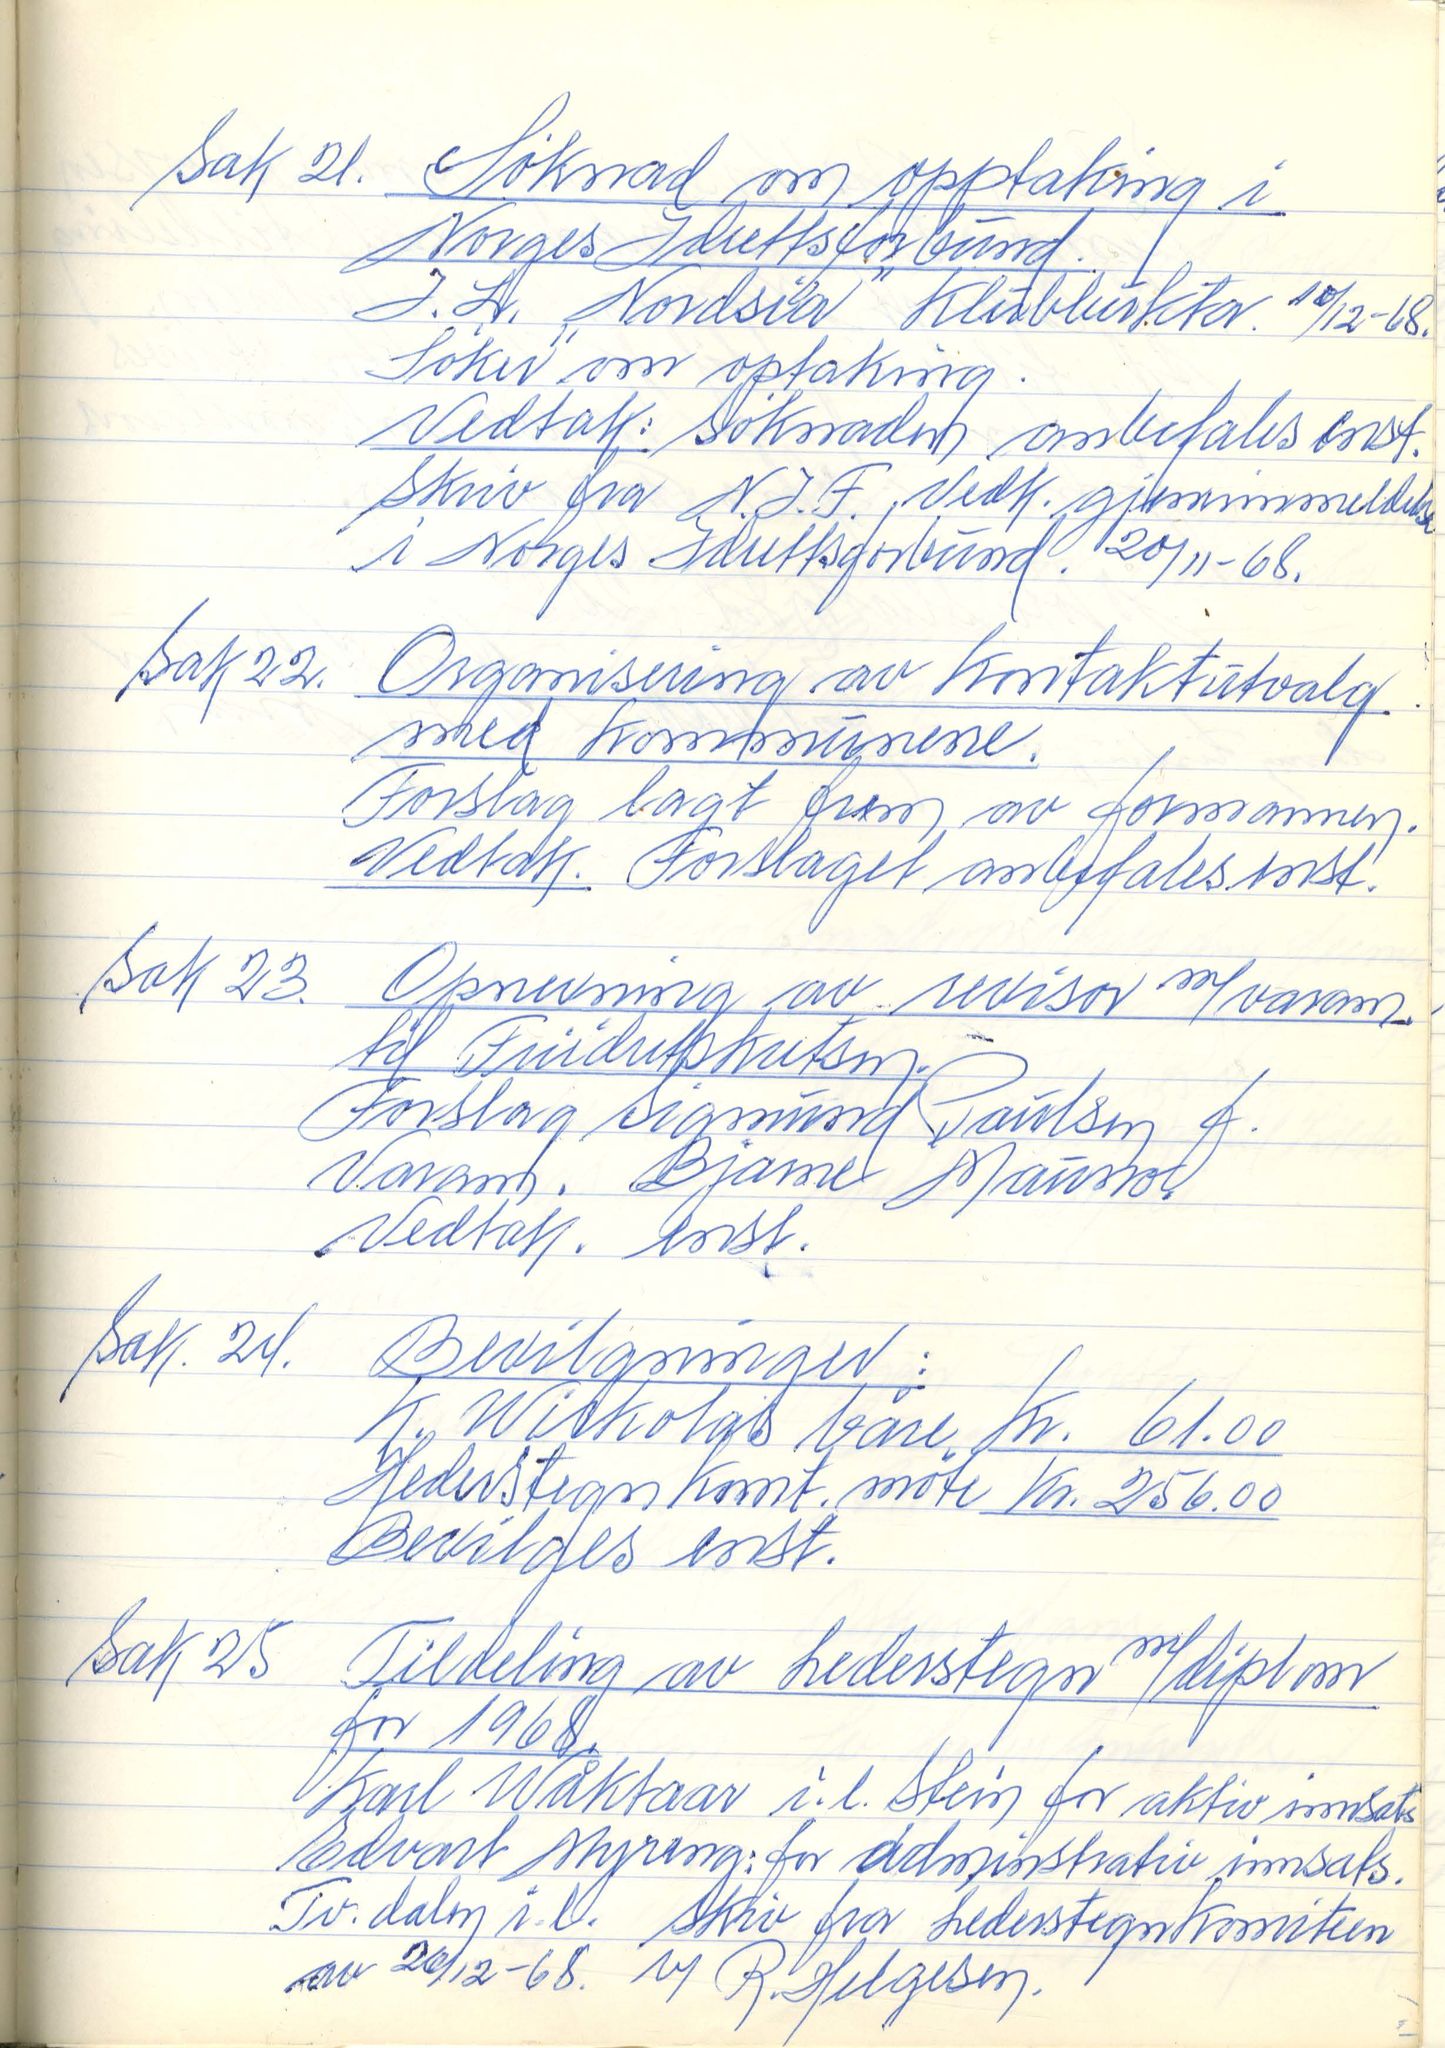 Sak 21. Söknad om opptaking i
Norges Idrettsforbund.
I.L. „Nordsia" Klubblirkta. 10/12-68.
Söker om optaking.
Vedtak: Söknaden anbefales enst.
Skriv fra N.I.F. Vedk. gjeninnmeldelse
i Norges Idrettsforbund. 20/11-68.
Sak 22. Organisering av Kontaktutvalg
med Kommunene.
Forslag lagt frem av formannen.
Vedtak. Forslaget anbefales enst.
Sak 23. Opnevning av revisor m/varam.
til Friidrettskretsen.
Forslag Sigmund Paulsen f.
Varam. Bjarne Maurnol
Vedtak. enst.
Sak. 24. Bevilgninger:
K. Wickolds båre. Kr. 61.00
Hederstegn Komt. möte Kr. 256.00
Bevilges enst.
Sak 25 Tildeling av hederstegn m/diplom
for 1968.
Karl Wåktaar i.l. Stein for aktiv innsats
Edvart Myreng: for adminstrativ innsats.
Tv. dalen i.l. Skriv fra hederstegnkomiteen
av 20/12-68. v/ R. Helgesen.